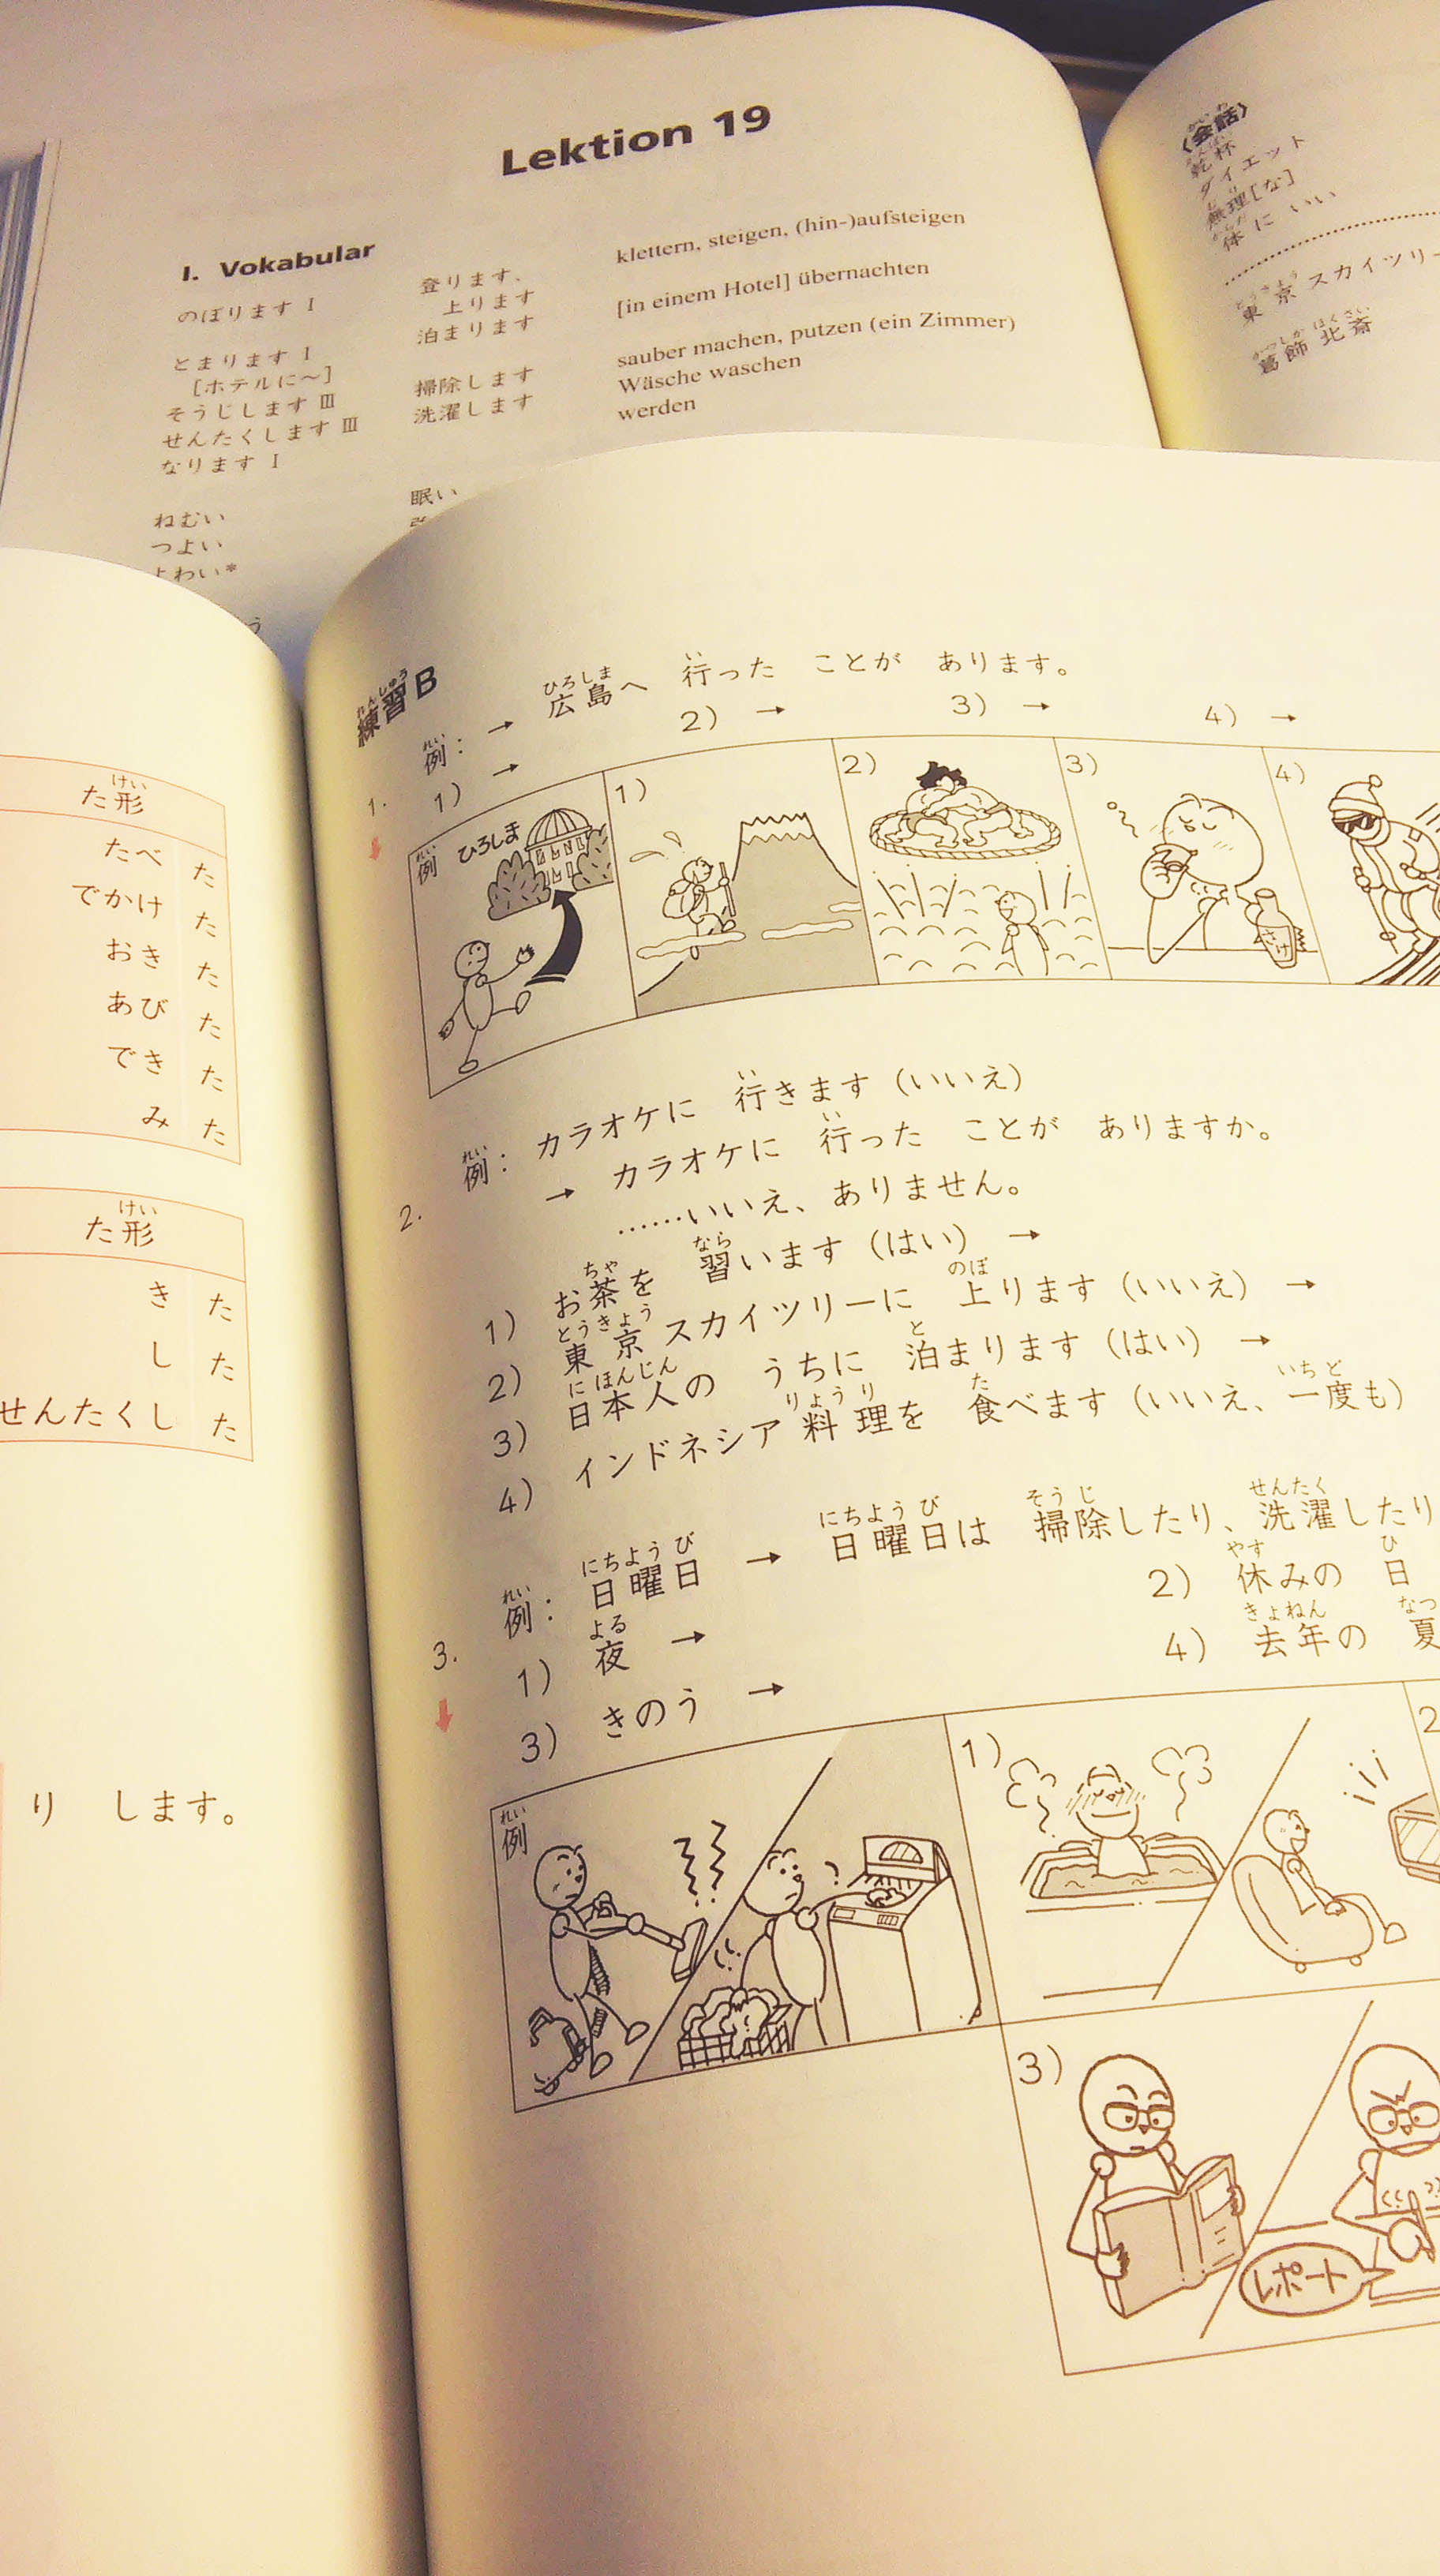 Lektion 19
I. Vokabular
のぼります I 登ります、 klettern, steigen, (hin-)aufsteigen
上ります
とまります I 泊まります [in einem Hotel] übernachten
[ホテルに〜]
そうじします III 掃除します sauber machen, putzen (ein Zimmer)
せんたくします III 洗濯します Wäsche waschen
なります I werden
ねむい 眠い
つよい
よわい*
〈会話〉
乾杯
ダイエット
無理[な]
体に いい
東京スカイツリー
葛飾北斎
た形
たべ た
でかけ た
おき た
あび た
でき た
み た
た形
き た
し た
せんたくし た
り します。
練習B
1. 例: → 広島へ 行った ことが あります。
1) → 2) → 3) → 4) →
例 ひろしま
1)
2)
3) さけ
4)
2. 例: カラオケに 行きます (いいえ)
→ カラオケに 行った ことが ありますか。
……いいえ、ありません。
1) お茶を 習います (はい) →
2) 東京スカイツリーに 上ります (いいえ) →
3) 日本人の うちに 泊まります (はい) →
4) インドネシア料理を 食べます (いいえ、一度も)
3. 例: 日曜日 → 日曜日は 掃除したり、洗濯したり
1) 夜 → 2) 休みの 日
3) きのう → 4) 去年の 夏
例
1)
2
3) レポート